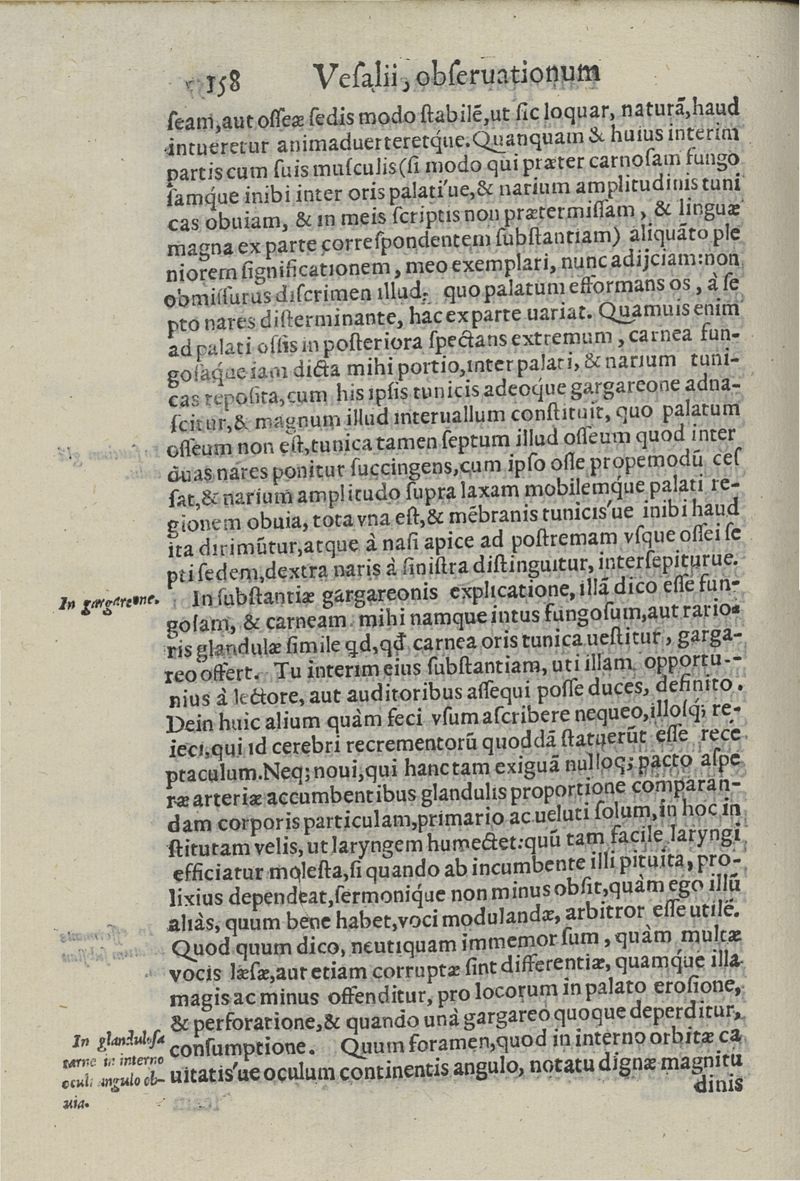 158 Veſalii, obſeruationum
ſeam, aut oſſeæ ſedis modo ſtabilē, ut ſic loquar, naturā, haud
intueretur animaduerteretq́ue. Quanquam & huius interim
partis cum ſuis muſculis (ſi modo qui præter carnoſam fungo
ſamq́ue inibi inter oris palati'ue, & narium amplitudinis tuni
cas obuiam, & in meis ſcriptis non prætermiſſam, & linguæ
magna ex parte correſpondentem ſubſtantiam) aliquāto ple
niorem ſignificationem, meo exemplari, nunc adijciam: non
obmiſſurus diſcrimen illud, quo palatum efformans os, à ſe
pto nares diſterminante, hac ex parte uariat. Quamuis enim
ad palati oſſis in poſteriora ſpectans extremum, carnea fun-
goſaq́ue iam dicta mihi portio, inter palati, & narium tuni-
cas repoſita, cum his ipſis tunicis adeoq́ue gargareone adna-
ſcitur, & magnum illud interuallum conſtituit, quo palatum
oſſeum non eſt, tunica tamen ſeptum illud oſſeum quod inter
duas nares ponitur ſuccingens, cum ipſo oſſe propemodū ceſ
ſat, & narium amplitudo ſupra laxam mobilemq́ue palati re-
gionem obuia, tota vna eſt, & mēbranis tunicis'ue inibi haud
ita dirimūtur, atque à naſi apice ad poſtremam vſque oſſei ſe
pti ſedem, dextra naris à ſiniſtra diſtinguitur, interſepiturue.
In gargareone. In ſubſtantiæ gargareonis explicatione, illā dico eſſe fun-
goſam, & carneam. mihi namque intus fungoſum, aut rario-
ris glandulæ ſimile qd, qđ carnea oris tunica ueſtitur, garga-
reo offert. Tu interim eius ſubſtantiam, uti illam opportu-
nius à lectore, aut auditoribus aſſequi poſſe duces, definito.
Dein huic alium quàm feci vſum aſcribere nequeo, illoſq; re-
ieci, qui id cerebri recrementorū quoddā ſtatuerūt eſſe rece
ptaculum. Neq; noui, qui hanc tam exiguā nulloq; pacto aſpe
ræ arteriæ accumbentibus glandulis proportione comparan-
dam corporis particulam, primario ac ueluti ſolum, in hoc in
ſtitutam velis, ut laryngem humectet: quū tam facile laryngi
efficiatur moleſta, ſi quando ab incumbente illi pituita, pro-
lixius dependeat, ſermoniq́ue non minus obſit, quàm ego illū
aliàs, quum bene habet, voci modulandæ, arbitror eſſe utilē.
Quod quum dico, neutiquam immemor ſum, quàm multæ
vocis læſæ, aut etiam corruptæ ſint differentiæ, quamq́ue illa
magis ac minus offenditur, pro locorum in palato eroſione,
& perforatione, & quando unà gargareo quoque deperditur,
conſumptione. Quum foramen, quod in interno orbitæ ca
uitatis'ue oculum continentis angulo, notatu dignæ magnitu
dinis
In glanduloſa
carne in interno
oculi angulo ob-
uia.